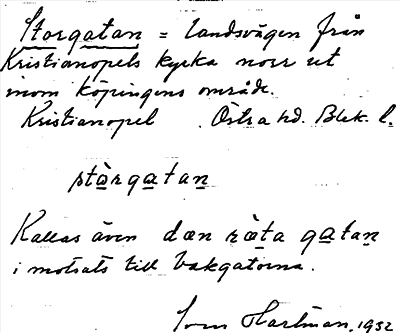 Storgatan = Landsvägen från
Kristianopels kyrka norr ut
inom köpingens område.
Kristianopel Östra hd. Blek. l.
stàrgatan
Kallas även dæn ràta gatan
i motsats till bakgatorna.
Hartman, 1932